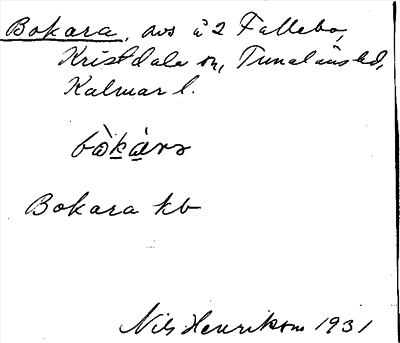 Bokara, avs å 2 Fallebo,
Kristdala sn, Tunaläns hd,
Kalmar l.
bòkàra
Bokara kb
Nils Henrikson 1931